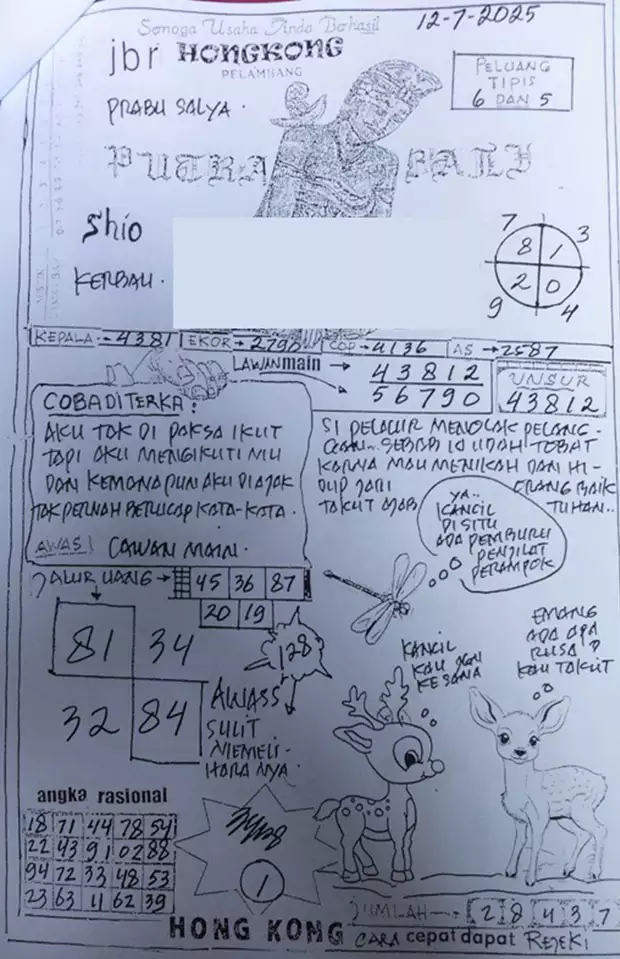 Semoga Usaha Anda Berhasil
12-7-2025
jbr HONGKONG
PELAMBANG
PELUANG
TIPIS
6 DAN 5
PRABU SALYA .
PUTRA BALI
Shio
KERBAU .
7
3
8 1
2 0
9
4
KEPALA → 4381
EKOR → 2790
COP → 4136
AS → 2587
LAWAN main →
43812
56790
UNSUR
43812
COBA DITERKA :
AKU TAK DI PAKSA IKUT
TAPI AKU MENGIKUTI MU
DAN KEMANA PUN AKU DIAJAK
TAK PERNAH BERUCAP KATA-KATA .
AWAS! CAWAN MAIN .
SI PELACUR MENOLAK PELANG-
GAN.. SEBAB IA UDAH TOBAT
KARNA MAU MENIKAH DAN HI-
DUP JADI ORANG BAIK
TAKUT AZAB TUHAN..
YA..
KANCIL
DISITU
ADA PEMBURU
PENJILAT
PERAMPOK
JALUR UANG → 45 36 87
20 19
81 34
32 84
128
AWASS
SULIT
MEMELI-
HARA NYA .
KANCIL
KAU JGN
KE SANA
EMANG
ADA APA
RUSA ?
KAU TAKUT
angka rasional
18 71 44 78 54
22 43 91 02 88
94 72 33 48 53
23 63 11 62 39
1
JUMLAH → 2 8 4 3 7
HONG KONG CARA cepat dapat REJEKI